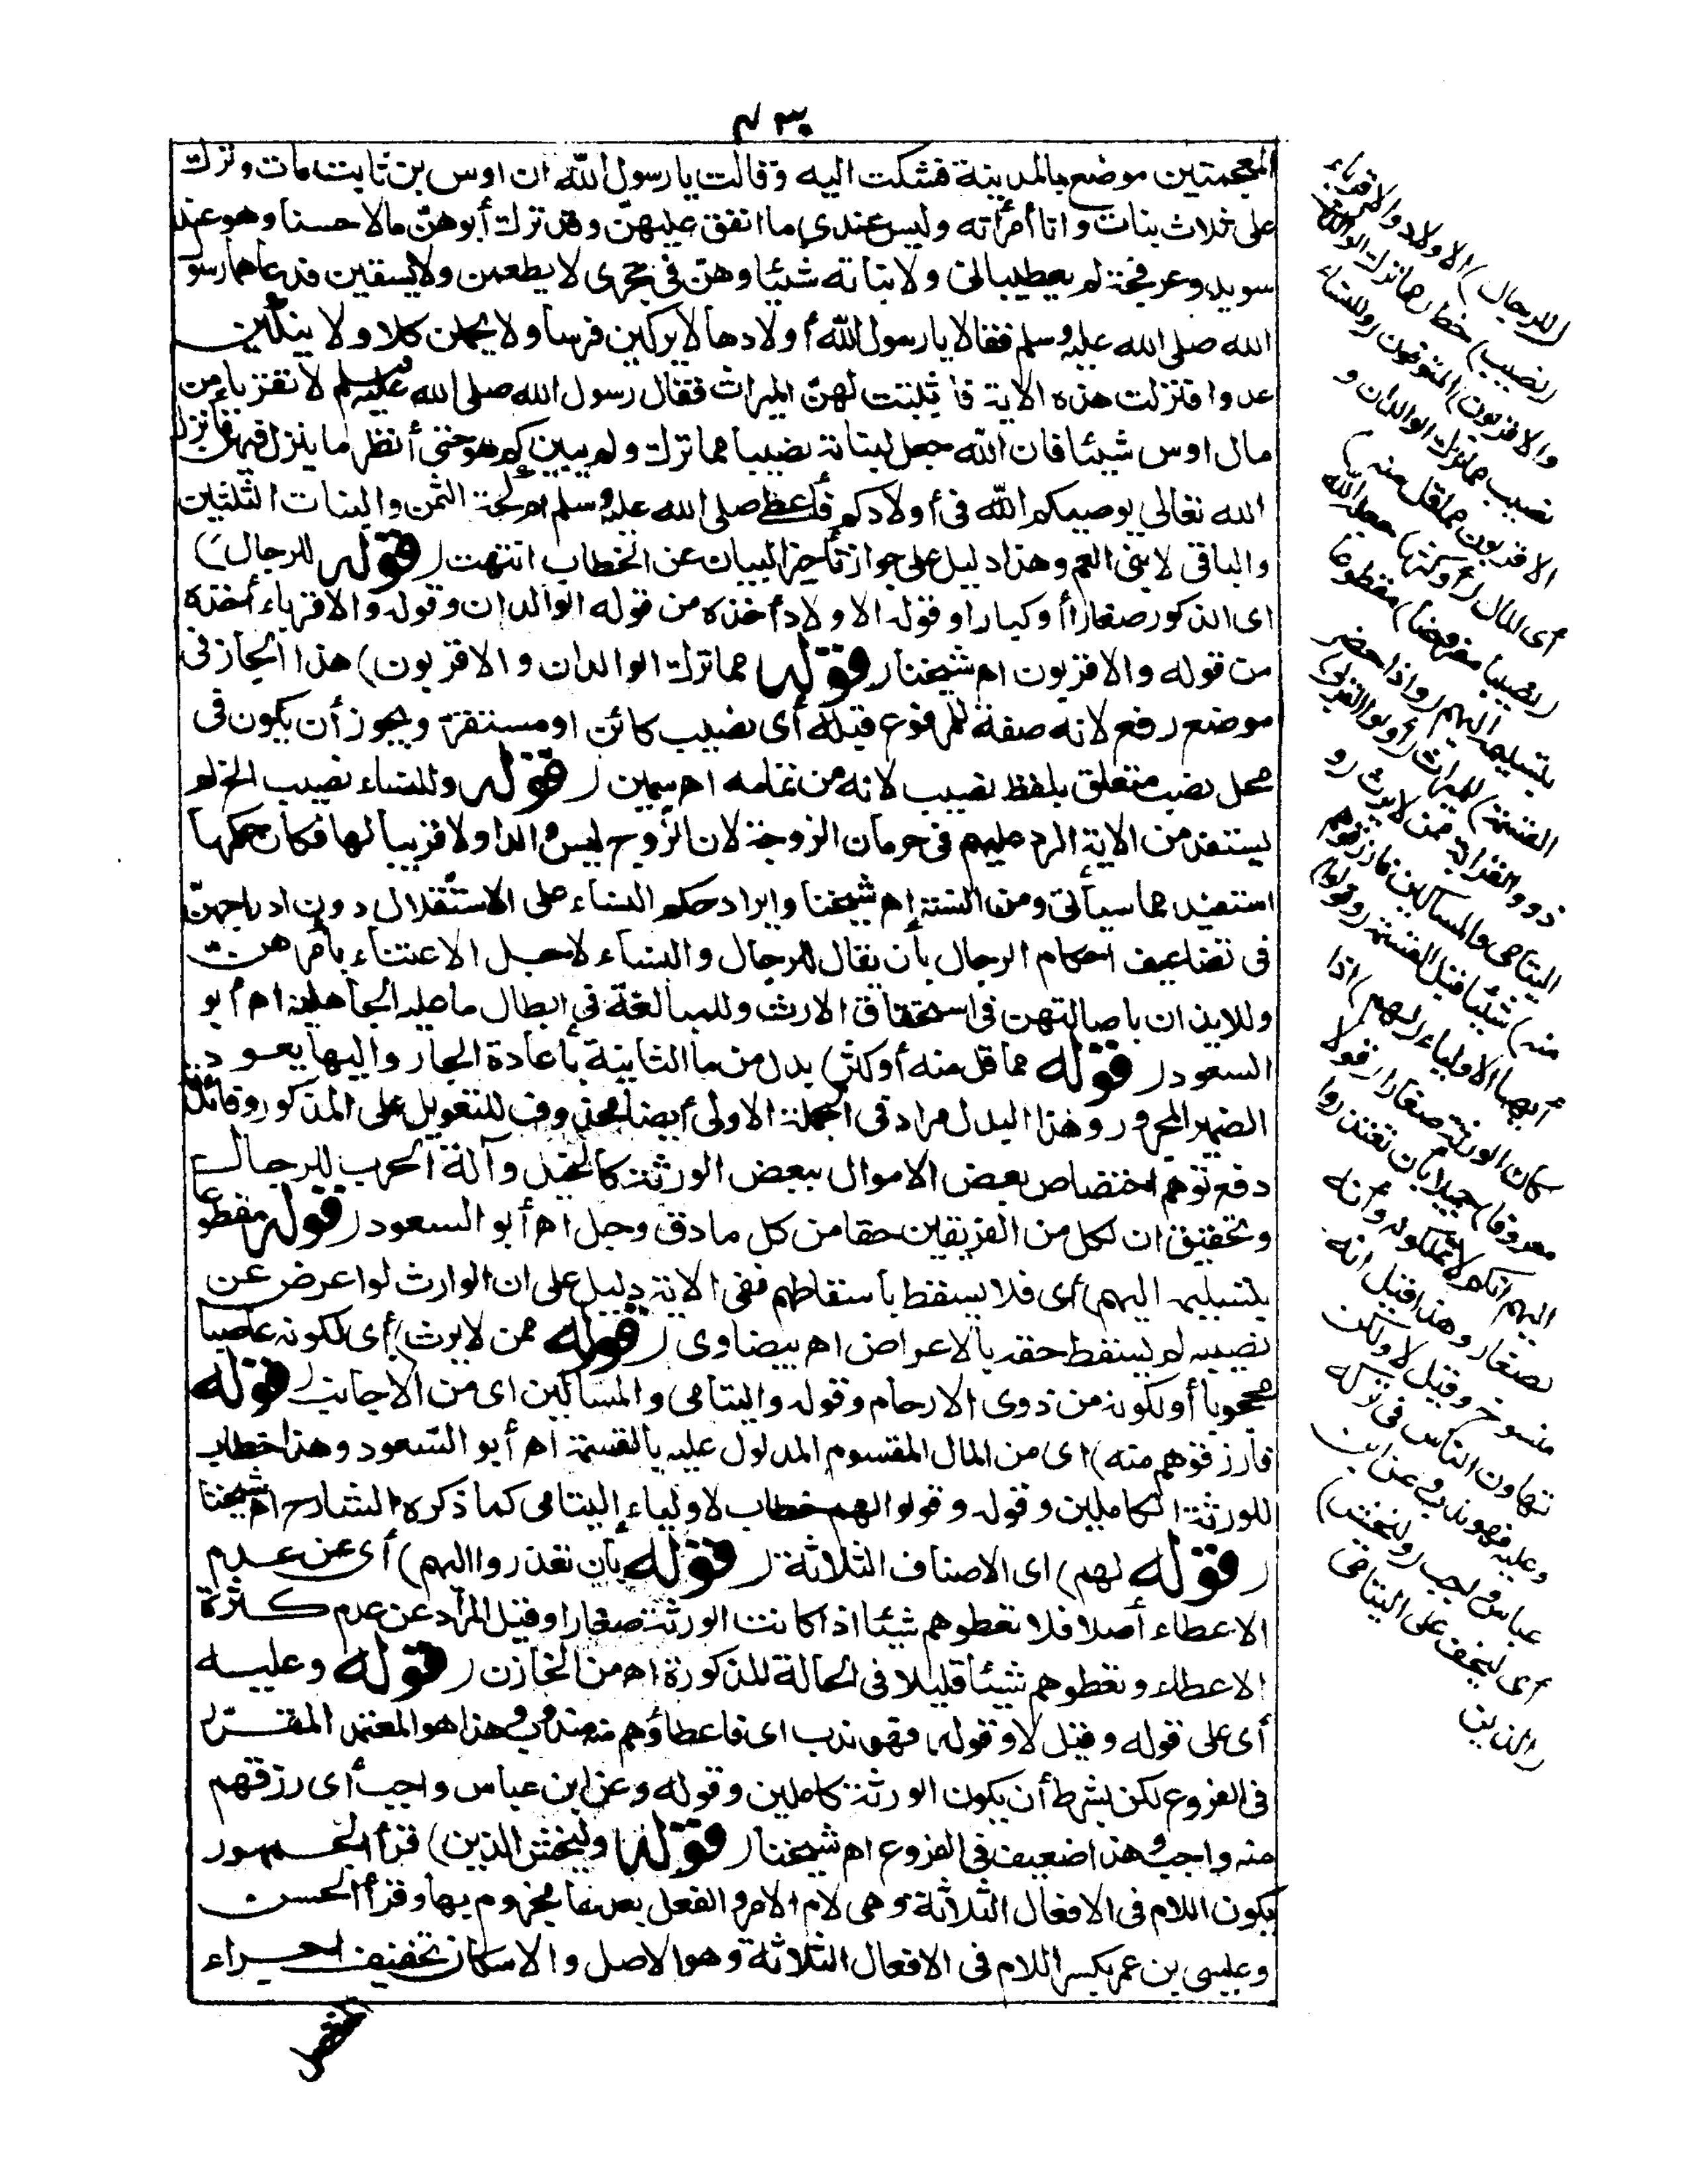 المعجمتين موضع بالمدينة فشكت اليه وقالت يا رسول الله ان اوس بن ثابت مات وترك
على ثلاث بنات وانا امرأته وليس عندي ما انفق عليهن وقد ترك أبوهن مالا حسنا وهو عند
سويد وعرفجة لم يعطياني ولا بناته شيئا وهن في حجرى لا يطعمن ولا يسقين فدعاهما رسول
الله صلى الله عليه وسلم فقالا يا رسول الله أولادها لا يركبن فرسا ولا يحملن كلا ولا ينكين
عدوا فنزلت هذه الاية فاثبتت لهن الميراث فقال رسول الله صلى الله عليه وسلم لا تقربا من
مال اوس شيئا فان الله جعل لبناته نصيبا مما ترك ولم يبين كم هو حتى أنظر ما ينزل فيهن فأنزل
الله تعالى يوصيكم الله في أولادكم فأعطى صلى الله عليه وسلم ام كحة الثمن والبنات الثلثين
والباقي لابني العم وهذا دليل على جواز تأخير البيان عن الخطاب انتهت (قوله للرجال)
اى الذكور صغارا أو كبارا وقوله الاولاد أخذه من قوله الوالدان وقوله والاقرباء أخذه
من قوله والاقربون اه شيخنا (قوله مما ترك الوالدان والاقربون) هذا الجار في
موضع رفع لانه صفة للمرفوع قبله أى نصيب كائن او مستقر ويجوز أن يكون في
محل نصب متعلق بلفظ نصيب لانه من تمامه اه سمين (قوله وللنساء نصيب الخ) لم
يستفد من الاية الرد عليهم في حرمان الزوجة لان الزوج ليس والدا ولا قريبا لها فكان حكمها
استفيد مما سيأتى ومن السنة اه شيخنا وايراد حكم النساء على الاستقلال دون ادراجهن
في تضاعيف احكام الرجال بأن يقال للرجال والنساء لاجل الاعتناء بأمرهن
وللايذان باصالتهن في استحقاق الارث وللمبالغة في إبطال ما عليه الجاهلية اه أبو
السعود (قوله مما قل منه أو كثر) بدل من ما الثانية باعادة الجار واليها يعود
الضمير المجرور وهذا البدل مراد في الجملة الاولى أيضا محذوف للتعويل على المذكور وفائدته
دفع توهم اختصاص بعض الاموال ببعض الورثة كالخيل وآلة الحرب للرجال
وتحقيق ان لكل من الفريقين حقا من كل ما دق وجل اه أبو السعود (قوله مقطوعا
بتسليمه اليهم) أى فلا يسقط باسقاطهم ففي الاية دليل على ان الوارث لو اعرض عن
نصيبه لم يسقط حقه بالاعراض اه بيضاوى (قوله ممن لا يرث) أى لكونه عاصبا
محجوبا أو لكونه من ذوى الارحام وقوله واليتامى والمساكين اى من الاجانب (قوله
فارزقوهم منه) اى من المال المقسوم المدلول عليه بالقسمة اه أبو السعود وهذا خطاب
للورثة الكاملين وقوله وقولوا لهم خطاب لاولياء اليتامى كما ذكره الشارح اه شيخنا
(قوله لهم) اى الاصناف الثلاثة (قوله بأن تعتذروا اليهم) أى عن عدم
الاعطاء أصلا فلا تعطوهم شيئا اذا كانت الورثة صغارا وقيل المراد عن عدم كثرة
الاعطاء وتعطوهم شيئا قليلا في الحالة المذكورة اه من الخازن (قوله وعليه
أى على قوله وقيل لا وقوله فهو ندب اى فاعطاؤهم منه مندوب وهذا هو المعتمد المقرر
في الفروع لكن بشرط أن يكون الورثة كاملين وقوله وعن ابن عباس واجب أى رزقهم
منه واجب وهذا ضعيف في الفروع اه شيخنا (قوله وليخش الذين) قرأ الجمهور
بكون اللام في الافعال الثلاثة وهى لام الامر والفعل بعدها مجزوم بها وقرأ الحسن
وعيسى بن عمر بكسر اللام في الافعال الثلاثة وهو الاصل والاسكان تخفيف اجراء
(للرجال) الاولاد والاقرباء
(نصيب) حظ (مما ترك الوالدان
والاقربون) المتوفون (وللنساء
نصيب مما ترك الوالدان و
الاقربون مما قل منه)
أى المال (أو كثر) جعله الله
(نصيبا مفروضا) مقطوعا
بتسليمه اليهم (واذا حضر
القسمة) للميراث (أولوا القربى)
ذوو القرابة ممن لا يرث (و
اليتامى والمساكين فارزقوهم
منه) شيئا قبل القسمة (وقولوا)
أيها الاولياء (لهم) اذا
كان الورثة صغارا (قولا
معروفا) جميلا بأن تعتذروا
اليهم انكم لا تملكونه وأنه
لصغار وهذا قيل انه
منسوخ وقيل لا ولكن
تهاون الناس في تركه
وعليه فهو ندب وعن ابن
عباس واجب (وليخش)
أى ليخف على اليتامى
(الذين